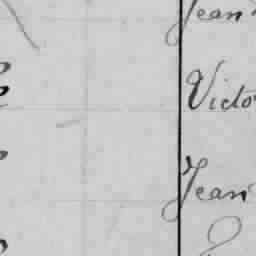 Jean
Victo
Jean